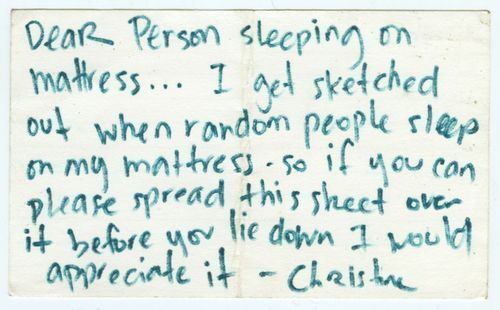 Dear Person sleeping on
mattress... I get sketched
out when random people sleep
on my mattress. so if you can
please spread this sheet over
it before you lie down I would
appreciate it - Christine